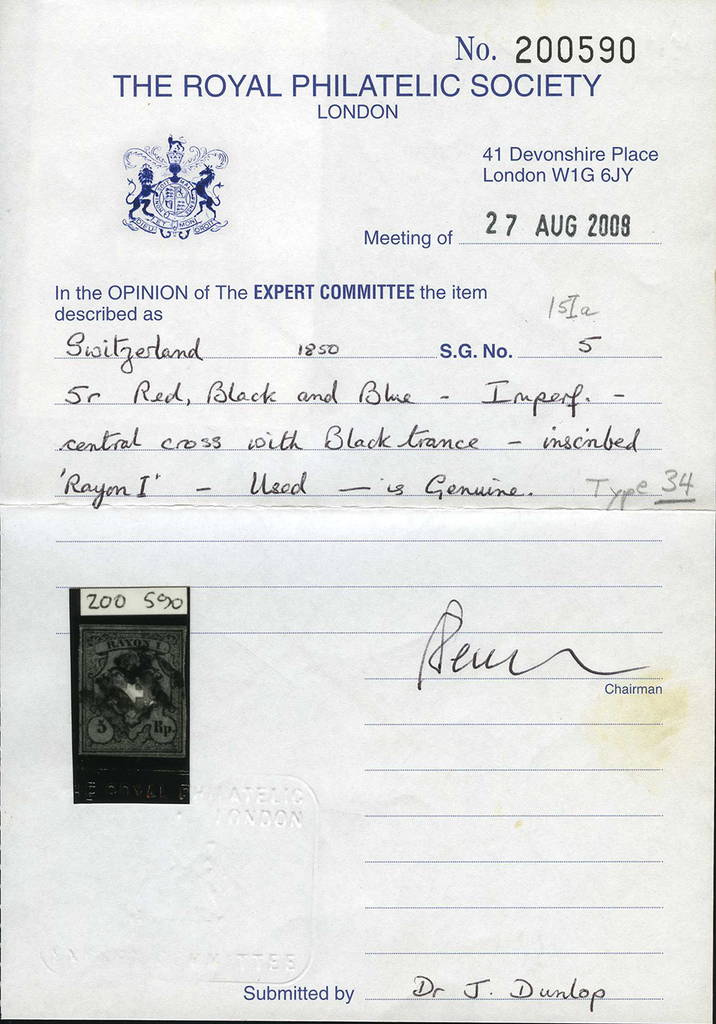 No. 200590
THE ROYAL PHILATELIC SOCIETY
LONDON
41 Devonshire Place
London W1G 6JY
DIEU ET MON DROIT
Meeting of 27 AUG 2009
In the OPINION of The EXPERT COMMITTEE the item
described as
15Ia
Switzerland 1850 S.G. No. 5
5r Red, Black and Blue - Imperf. -
central cross with Black trance - inscribed
'Rayon I' - Used - is Genuine. Type 34
200 590
RAYON I.
5 Rp.
Chairman
THE ROYAL PHILATELIC
LONDON
EXPERT COMMITTEE
Submitted by Dr J. Dunlop